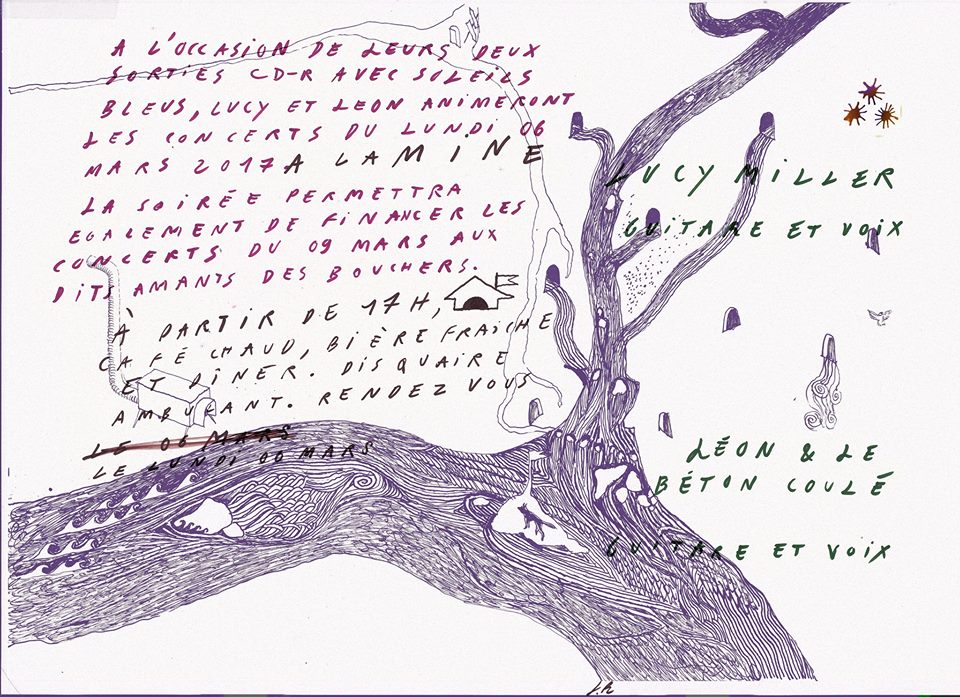 A L'OCCASION DE LEURS DEUX
SORTIES CD-R AVEC SOLEILS
BLEUS, LUCY ET LEON ANIMERONT
LES CONCERTS DU LUNDI 06
MARS 2017 A LAMINE
LA SOIRÉE PERMETTRA
EGALEMENT DE FINANCER LES
CONCERTS DU 09 MARS AUX
DITS AMANTS DES BOUCHERS.
À PARTIR DE 17H,
CAFÉ CHAUD, BIÈRE FRAICHE
ET DÎNER. DISQUAIRE
AMBULANT. RENDEZ VOUS
LE 06 MARS
LE LUNDI 06 MARS
LUCY MILLER
GUITARE ET VOIX
LÉON & LE
BÉTON COULÉ
GUITARE ET VOIX